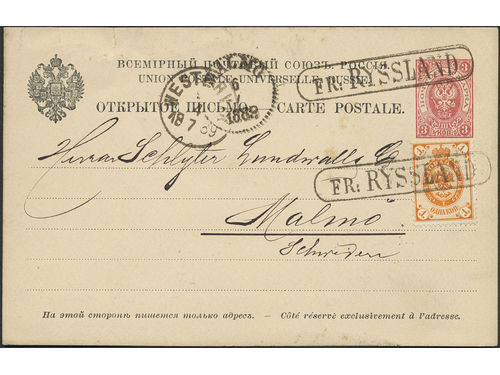 ВСЕМІРНЫЙ ПОЧТОВЫЙ СОЮЗЪ. РОССІЯ.
UNION POSTALE UNIVERSELLE. RUSSIE.
ОТКРЫТОЕ ПИСЬМО. — CARTE POSTALE.
FR: RYSSLAND
3 3
1889
18 7 89
Herrar Schlyter Lundwalls Co
FR: RYSSLAND
ОДНА КОП.
1 1
Malmö
Schweden
На этой сторонѣ пишется только адресъ. — Côté réservé exclusivement à l'adresse.